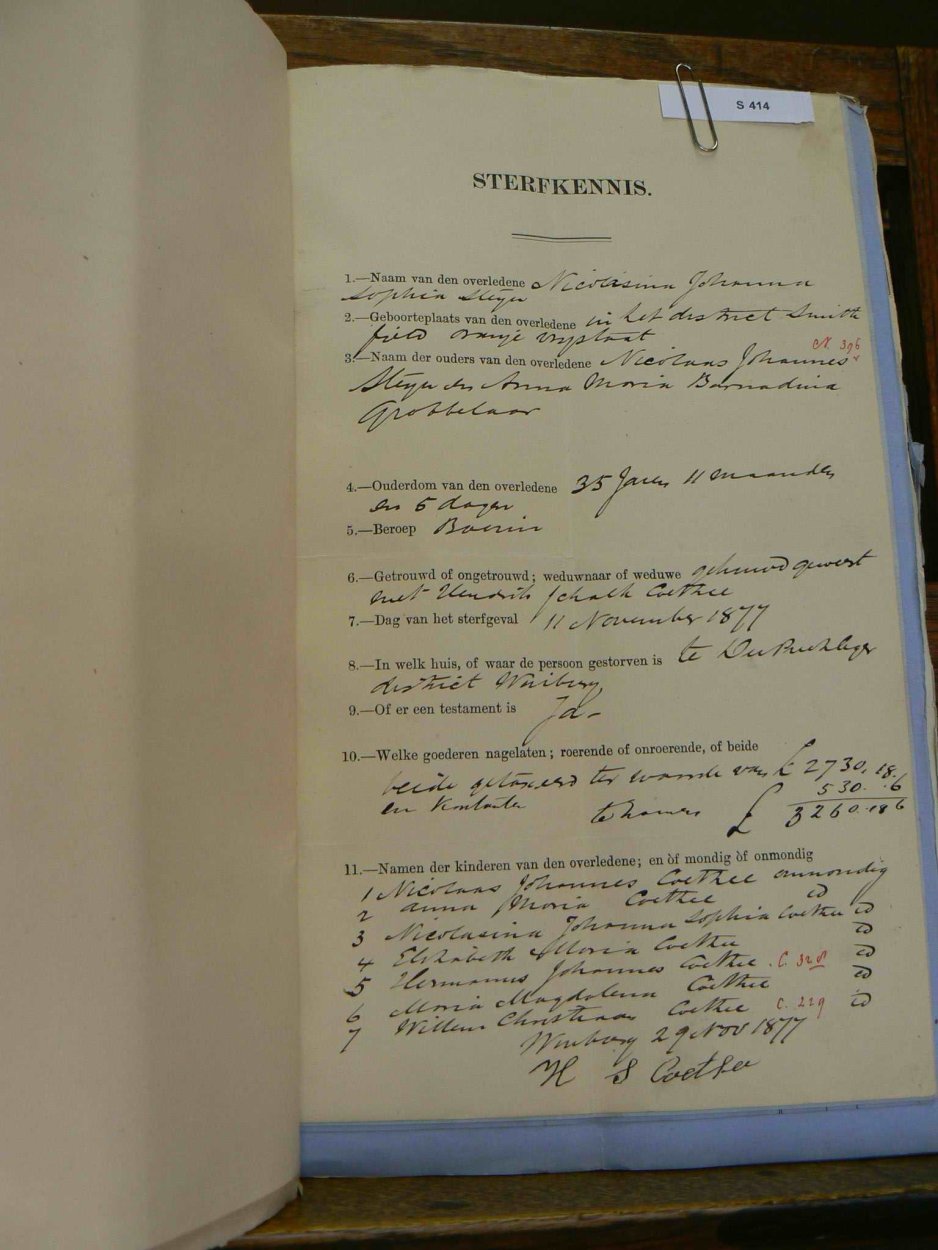 S 414
STERFKENNIS.
1.—Naam van den overledene Nicolasina Johanna
Sophia Steyn
2.—Geboorteplaats van den overledene in het district Smith
field oranje vrystaat
3.—Naam der ouders van den overledene Nicolaas Johannes
Steyn en Anna Maria Barnadina
Grobbelaar
4.—Ouderdom van den overledene 35 Jaren 11 maanden
en 5 dagen
5.—Beroep Boerin
6.—Getrouwd of ongetrouwd; weduwnaar of weduwe gehuwd geweest
met Hendrik Schalk Coetzee
7.—Dag van het sterfgeval 11 November 1877
8.—In welk huis, of waar de persoon gestorven is te
district Winburg
9.—Of er een testament is Ja -
10.—Welke goederen nagelaten; roerende of onroerende, of beide
beide getaxeerd ter waarde van £ 2730. 18.
en Kontanten 530. . 6
te zamen £ 3260. 18 6
11.—Namen der kinderen van den overledene; en òf mondig òf onmondig
1 Nicolaas Johannes Coetzee onmondig
2 Anna Maria Coetzee id
3 Nicolasina Johanna Sophia Coetzee id
4 Elizabeth Maria Coetzee id
5 Hermanus Johannes Coetzee C. 328 id
6 Maria Magdalena Coetzee id
7 Willem Christiaan Coetzee C. 229 id
Winburg 29 Nov 1877
H S Coetzee